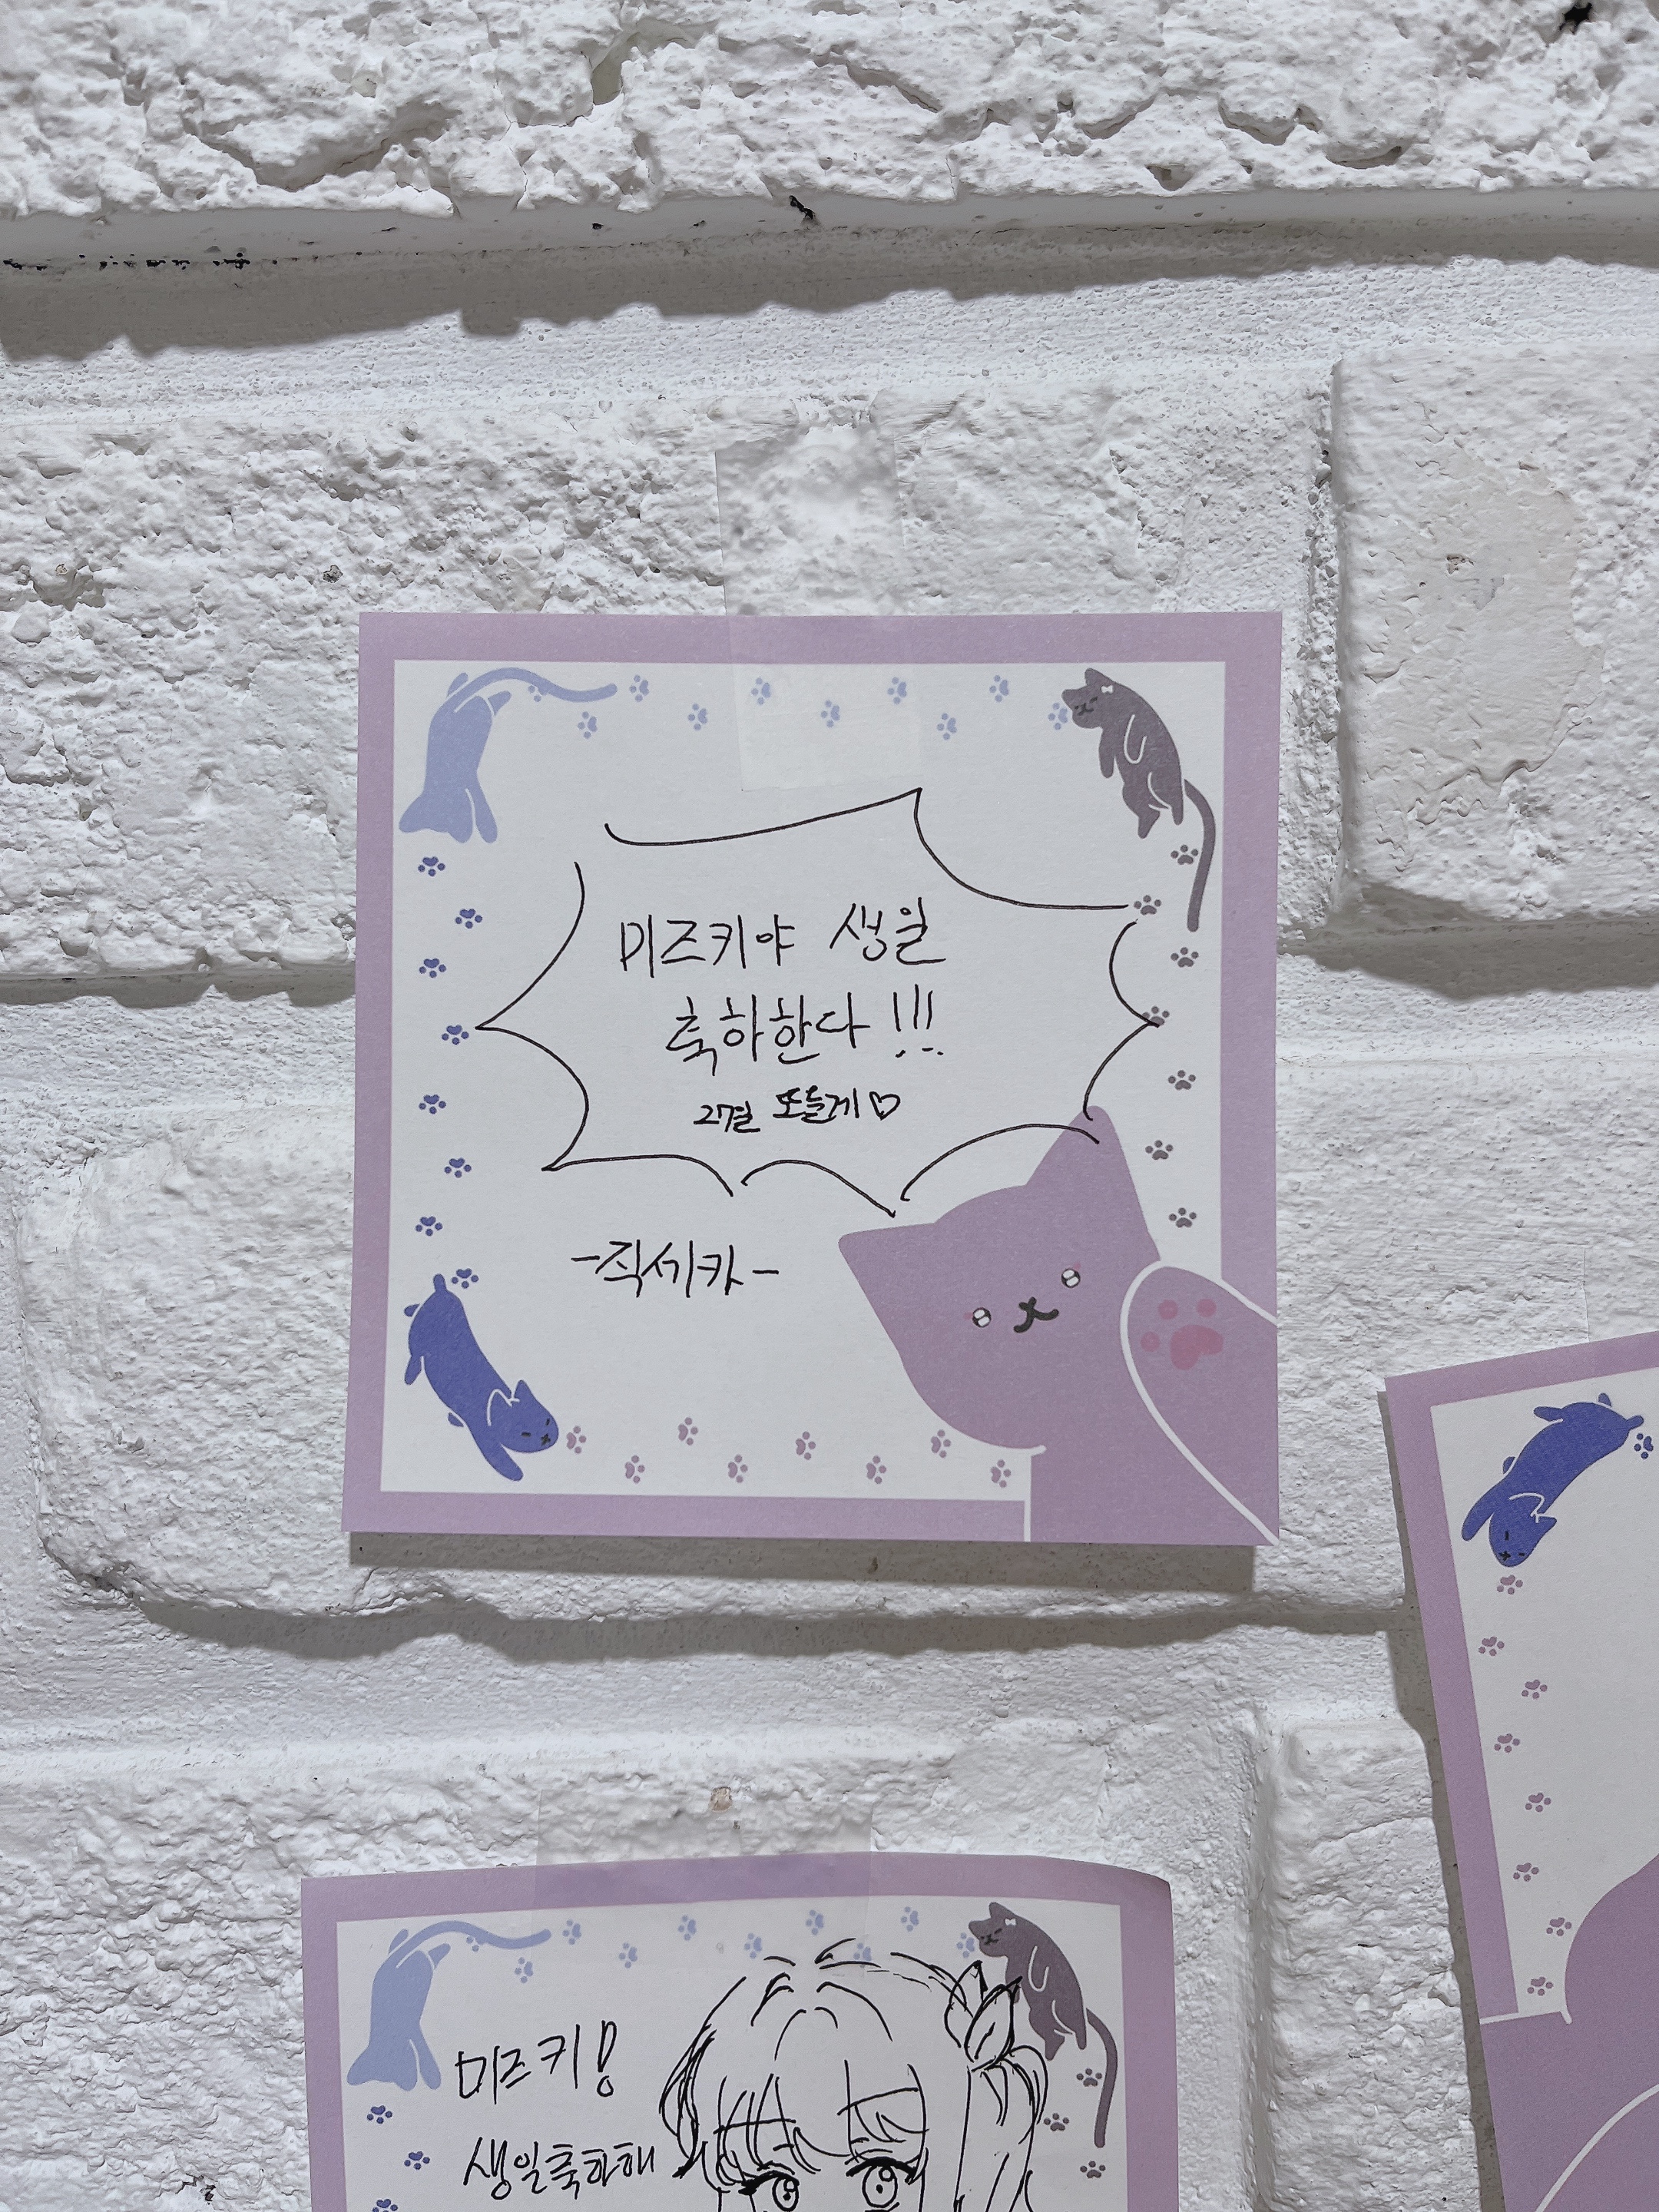 미즈키야 생일
축하한다 !!!
27일 또올게♡
-직세카-
미즈키!
생일축하해